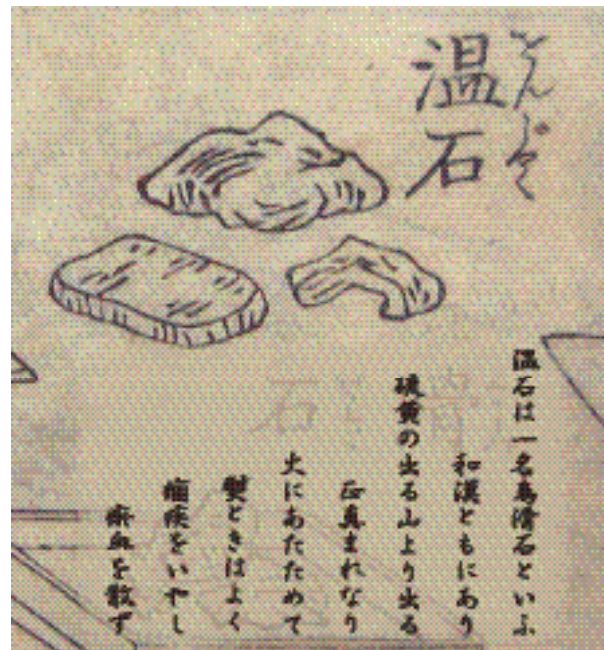 温石
をんじやく
温石は一名烏滑石といふ
和漢ともにあり
硫黄の出る山より出る
正真まれなり
火にあたためて
熨どきはよく
痼疾をいやし
瘀血を散ず